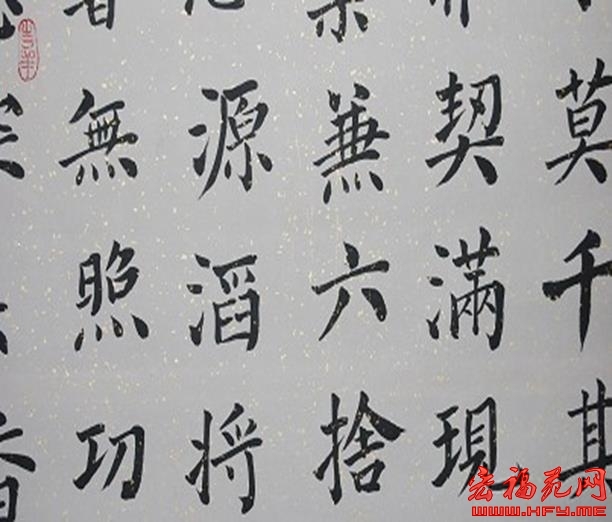 莫千其
契滿現
兼六捨
源滔将
無照功
宏福苑网
WWW.HFY.ME